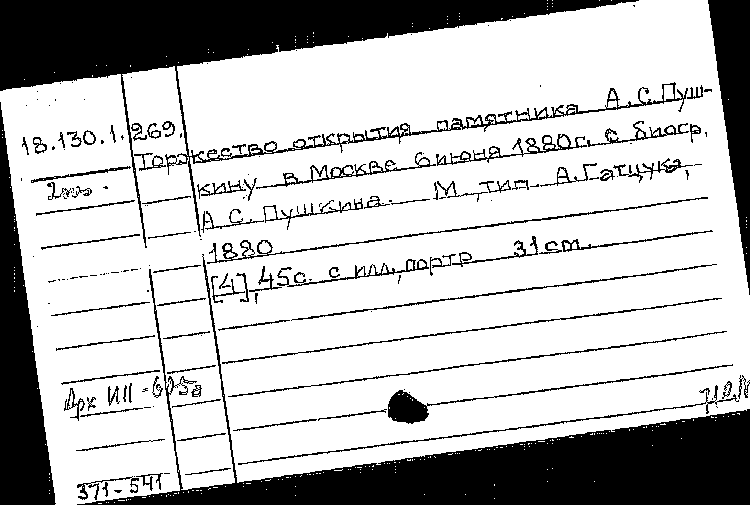 18.130.1.269.
Торжество открытия памятника А.С.Пуш-
кину в Москве 6 июня 1880г. с биогр.
А.С. Пушкина. М., тип. А.Гатцука,
1880.
[4], 45с. с илл., портр. 31см.
Арх ИП-605а
371-541